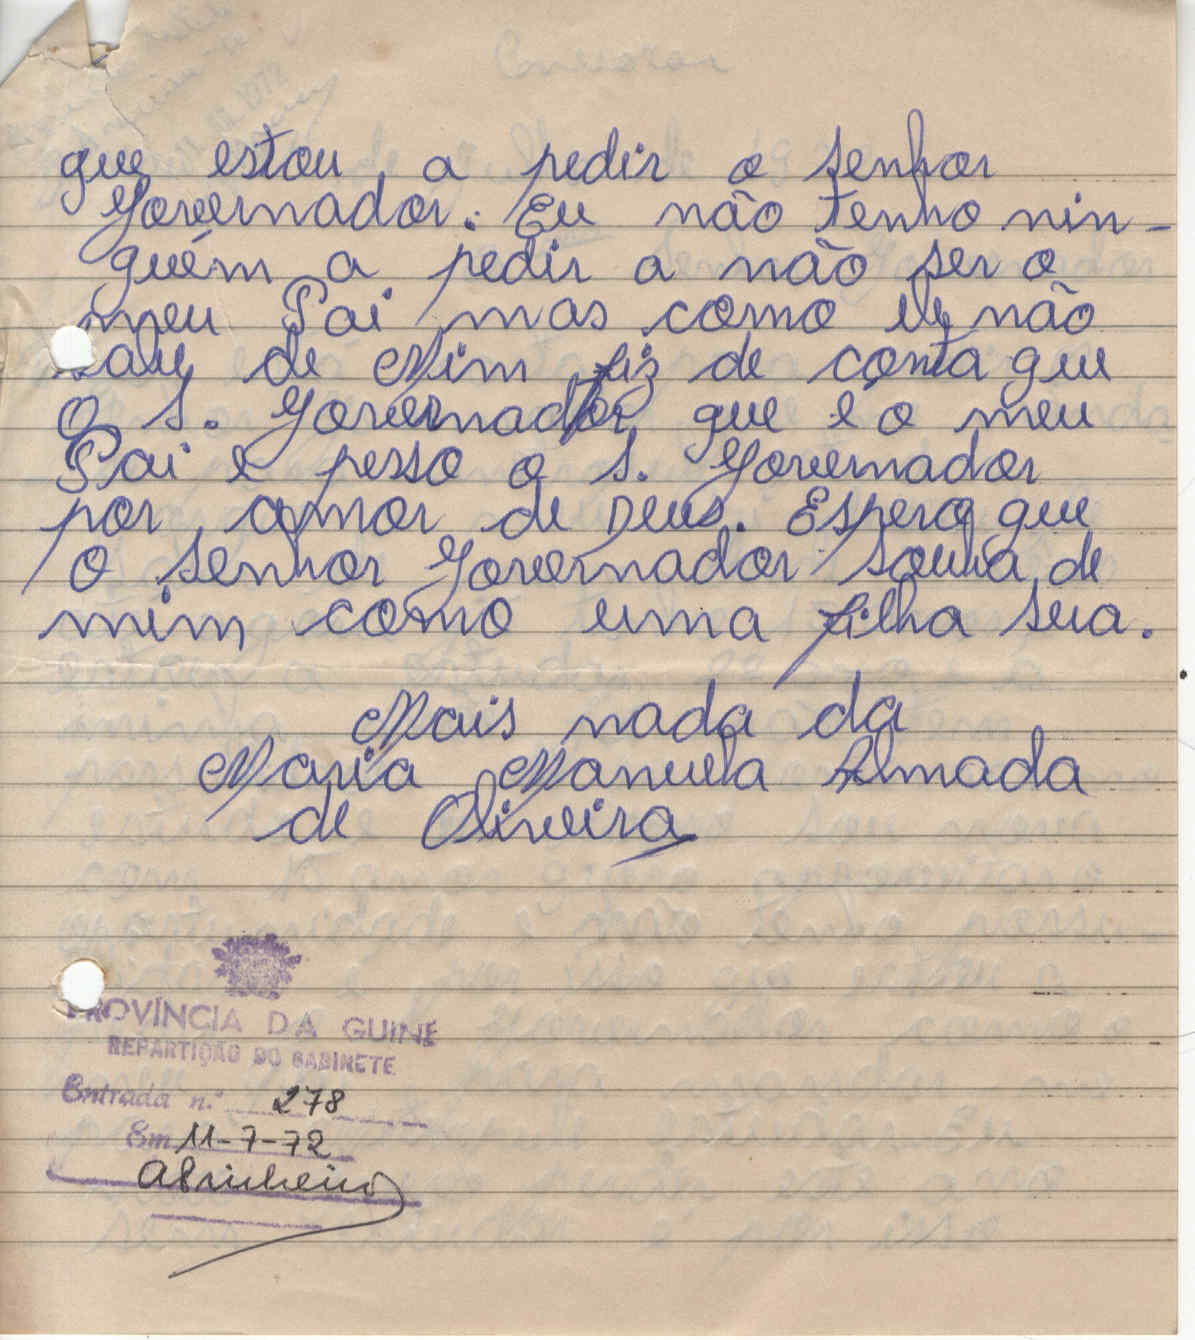 que estou a pedir o senhor
Governador. Eu não tenho nin-
guém a pedir a não ser o
meu Pai mas como ele não
sabe de Mim fiz de conta que
o S. Governador que é o meu
Pai e pesso o S. Governador
por amor de Deus. Espero que
o senhor Governador souba de
mim como uma filha sua.
Mais nada da
Maria Manuela Almada
de Oliveira
PROVÍNCIA DA GUINÉ
REPARTIÇÃO DO GABINETE
Entrada n.º 278
Em 11-7-72